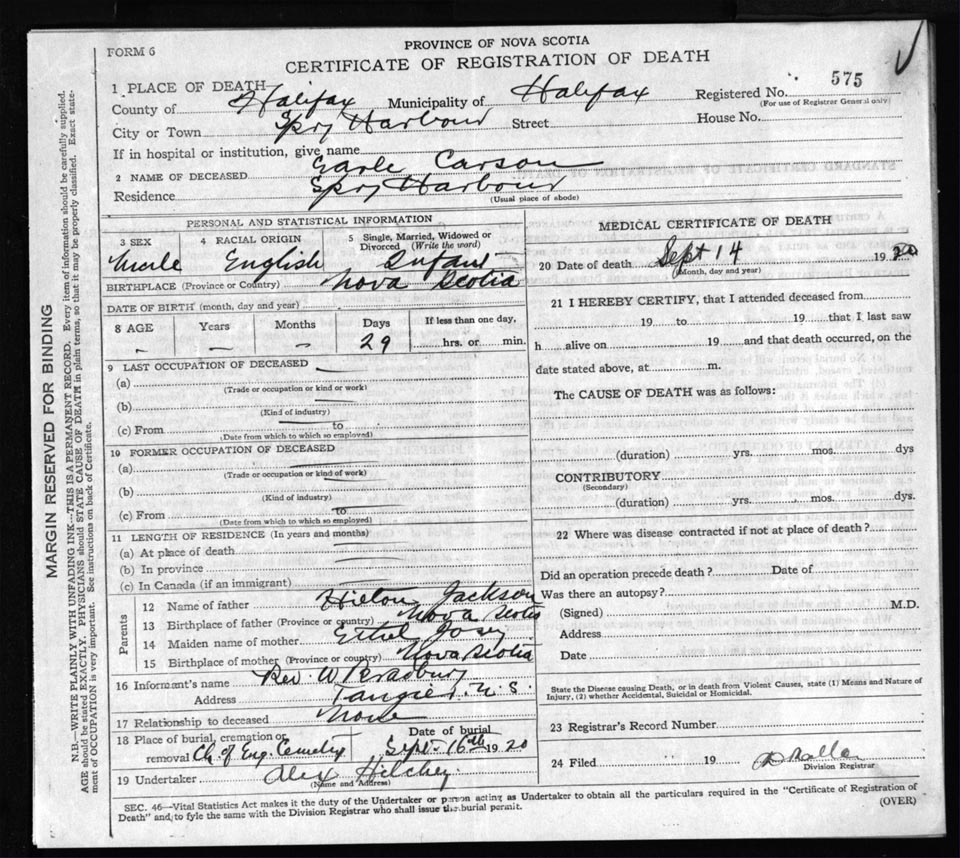 FORM 6
PROVINCE OF NOVA SCOTIA
CERTIFICATE OF REGISTRATION OF DEATH
1 PLACE OF DEATH
Registered No. 575
(For use of Registrar General only)
County of Halifax Municipality of Halifax
House No.
City or Town Spry Harbour Street
If in hospital or institution, give name
2 NAME OF DECEASED Earle Carson
Residence Spry Harbour
(Usual place of abode)
PERSONAL AND STATISTICAL INFORMATION
3 SEX 4 RACIAL ORIGIN 5 Single, Married, Widowed or Divorced (Write the word)
Male English Infant
BIRTHPLACE (Province or Country) Nova Scotia
DATE OF BIRTH (month, day and year)
8 AGE Years Months Days If less than one day,
– – – 29 hrs. or min.
9 LAST OCCUPATION OF DECEASED
(a)
(Trade or occupation or kind or work)
(b)
(Kind of industry)
(c) From to
(Date from which to which so employed)
10 FORMER OCCUPATION OF DECEASED
(a)
(Trade or occupation or kind of work)
(b)
(Kind of industry)
(c) From to
(Date from which to which so employed)
11 LENGTH OF RESIDENCE (In years and months)
(a) At place of death
(b) In province
(c) In Canada (if an immigrant)
Parents
12 Name of father Hilton Jackson
13 Birthplace of father (Province or country) Nova Scotia
14 Maiden name of mother Ethel Josey
15 Birthplace of mother (Province or country) Nova Scotia
16 Informant's name Rev. W Bradbury
Address Tangier. N. S.
17 Relationship to deceased None
18 Place of burial, cremation or Date of burial
removal Ch of Eng. Cemetery Sept. 16th 1920
19 Undertaker Alex Hilchey.
(Name and Address)
MEDICAL CERTIFICATE OF DEATH
20 Date of death Sept 14 1920
(Month, day and year)
21 I HEREBY CERTIFY, that I attended deceased from
19 to 19 that I last saw
h alive on 19 and that death occurred, on the
date stated above, at m.
The CAUSE OF DEATH was as follows:
(duration) yrs. mos. dys
CONTRIBUTORY
(Secondary)
(duration) yrs. mos. dys.
22 Where was disease contracted if not at place of death?
Did an operation precede death? Date of
Was there an autopsy?
(Signed) M.D.
Address
Date
State the Disease causing Death, or in death from Violent Causes, state (1) Means and Nature of
Injury, (2) whether Accidental, Suicidal or Homicidal.
23 Registrar's Record Number
24 Filed 19
Division Registrar
SEC. 46—Vital Statistics Act makes it the duty of the Undertaker or person acting as Undertaker to obtain all the particulars required in the "Certificate of Registration of
Death" and to fyle the same with the Division Registrar who shall issue the burial permit.
(OVER)
MARGIN RESERVED FOR BINDING
N.B.—WRITE PLAINLY WITH UNFADING INK—THIS IS A PERMANENT RECORD. Every item of information should be carefully supplied.
AGE should be stated EXACTLY. PHYSICIANS should STATE CAUSE OF DEATH in plain terms, so that it may be properly classified. Exact state-
ment of OCCUPATION is very important. See instructions on back of Certificate.